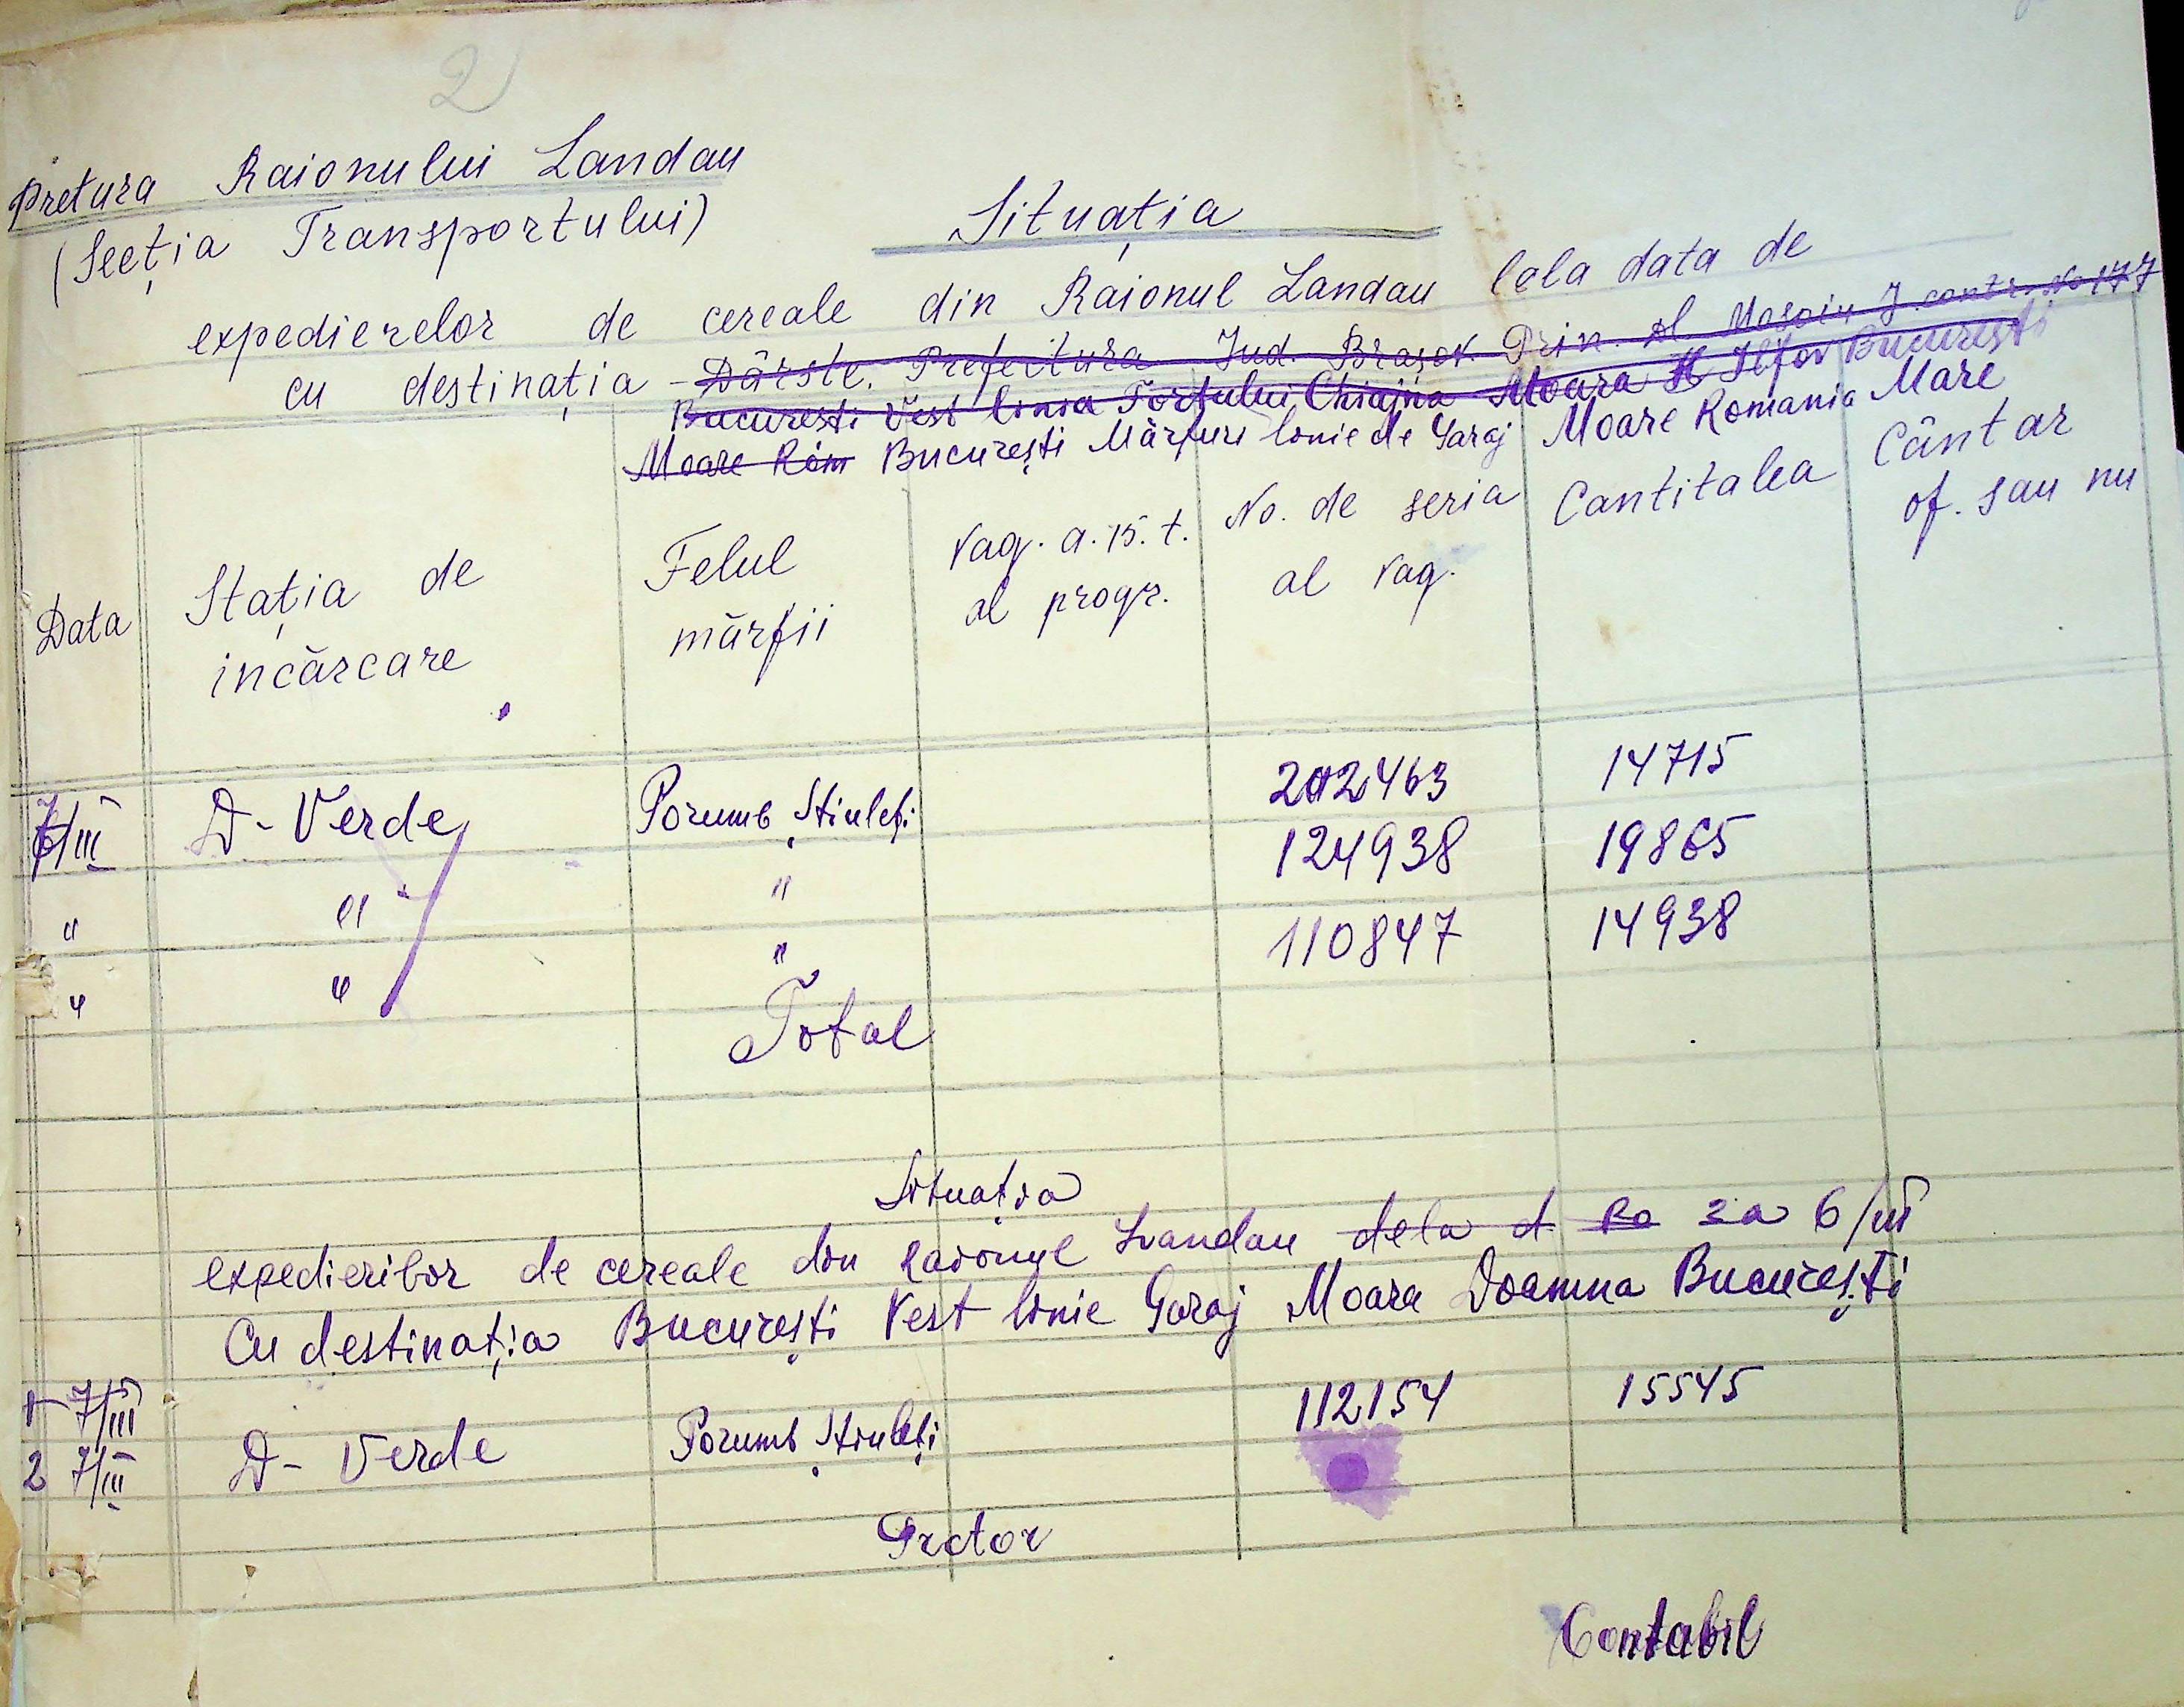 2
Pretura Raionului Landau
(Secția Transportului)
Situația
expedierelor de cereale din Raionul Landau la data de
cu destinația - Dârste. Prefectura Jud. Brașov. Prin. Al. Moșoiu J. contr. No 177
București Vest linia Fortului Chiajna Moara Ilfov București
Moare Rom București Mărfuri linie de Garaj Moare Romania Mare
Data Stația de incărcare Felul mărfii Vag. a. 15. t. al progr. No. de seria al vag. Cantitatea Cântar of. sau nu
7/III D- Verde Porumb Știuleți 202463 14715
" " " 124938 19865
" " " 110847 14938
Total
Situația
expedierilor de cereale din Raionul Landau dela d 6/III
Cu destinația București Vest linie Garaj Moara Doamna București
1 7/III 112154 15545
2 7/III D- Verde Porumb Știuleți
Pretor
Contabil